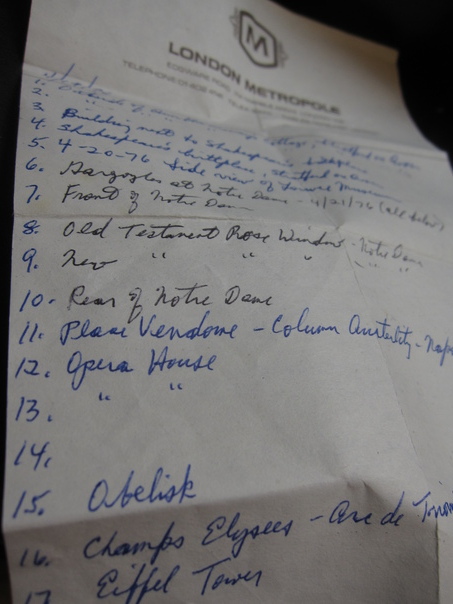 M
LONDON METROPOLE
EDGWARE ROAD
TELEPHONE 01-402
1.
2.
3. Building next to Shakespeare's
4. Shakespeare's birthplace, Stratford on Avon
5. 4-20-76 Side view of Louvre Museum
6. Gargoyles at Notre Dame - 4/21/76 (all below)
7. Front of Notre Dame
8. Old Testament Rose Window - Notre Dame
9. New " " " " "
10. Rear of Notre Dame
11. Place Vendome - Column Austerlity - Nap
12. Opera House
13. " "
14.
15. Obelisk
16. Champs Elysees - Arc de
17. Eiffel Tower